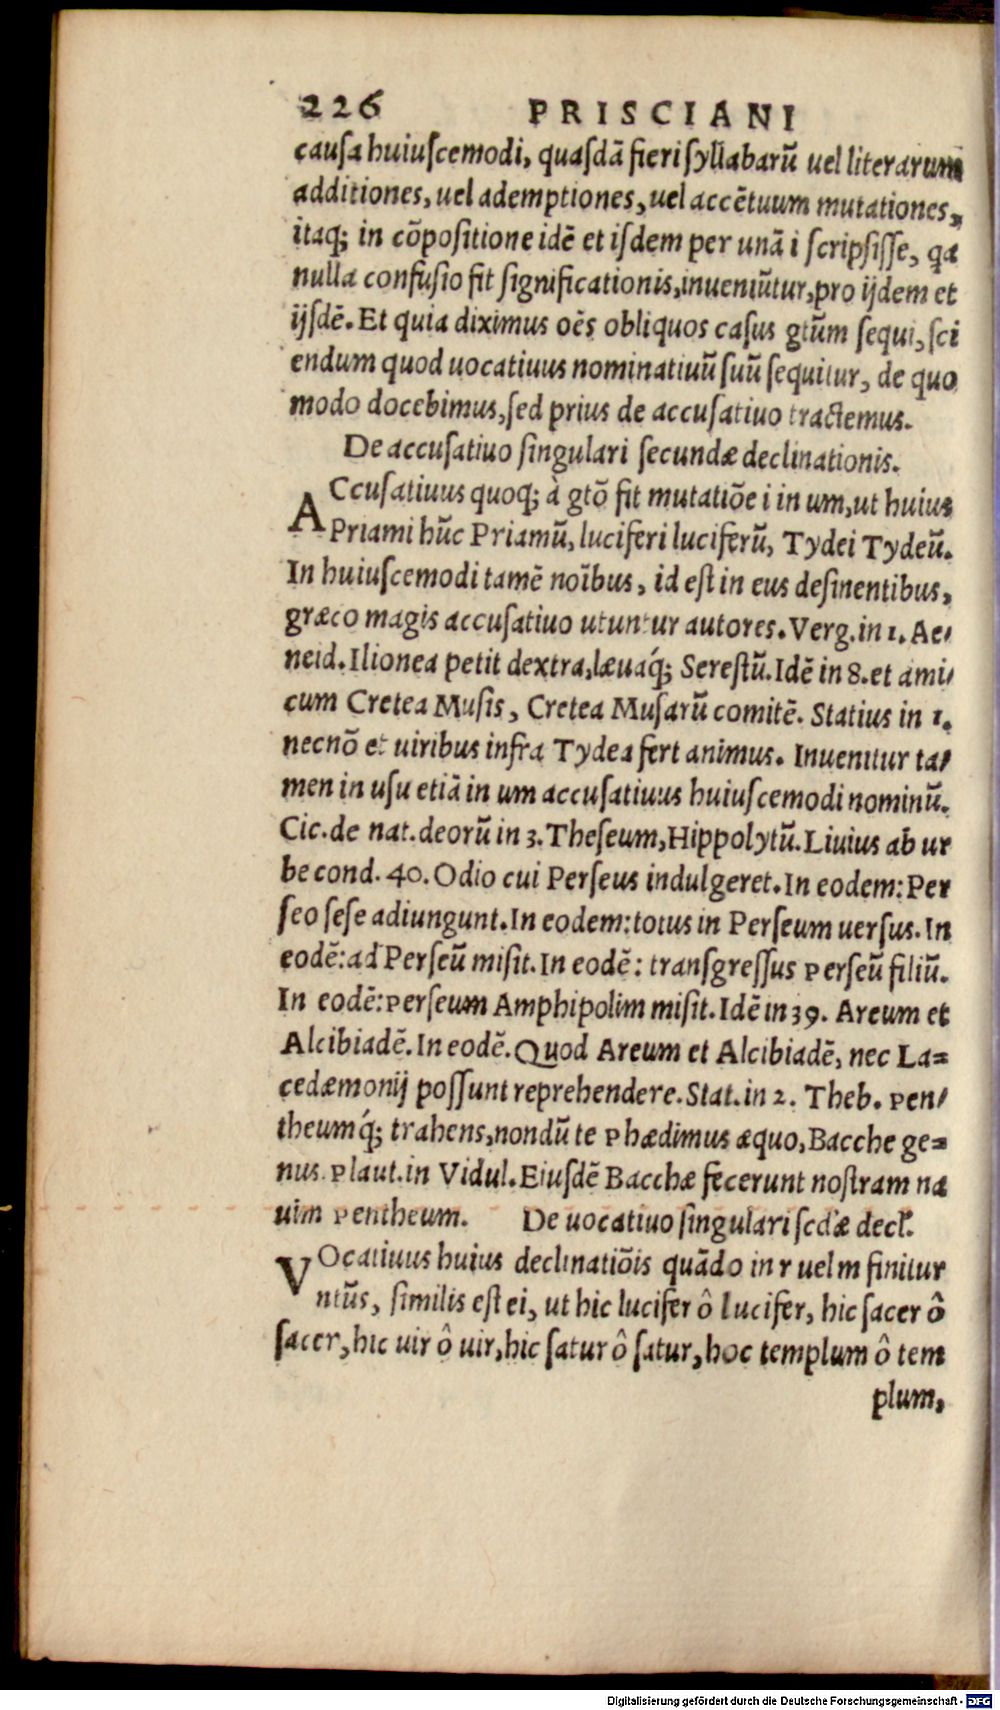 226 PRISCIANI
causa huiuscemodi, quasdā fieri syllabarū uel literarum
additiones, uel ademptiones, uel accētuum mutationes,
itaq; in cōpositione idē et isdem per unā i scripsisse, qa
nulla confusio fit significationis, inueniūtur, pro ijdem et
ijsdē. Et quia diximus oēs obliquos casus gtūm sequi, sci
endum quod uocatiuus nominatiuū suū sequitur, de quo
modo docebimus, sed prius de accusatiuo tractemus.
De accusatiuo singulari secundæ declinationis.
ACcusatiuus quoq; à gtō fit mutatiōe i in um, ut huius
Priami hūc Priamū, luciferi luciferū, Tydei Tydeū.
In huiuscemodi tamē noībus, id est in eus desinentibus,
græco magis accusatiuo utuntur autores. Verg. in 1. Ae/
neid. Ilionea petit dextra, læuaq́; Serestū. Idē in 8. et ami/
cum Cretea Musis, Cretea Musarū comitē. Statius in 1.
necnō et uiribus infra Tydea fert animus. Inuenitur ta/
men in usu etiā in um accusatiuus huiuscemodi nominū.
Cic. de nat. deorū in 3. Theseum, Hippolytū. Liuius ab ur
be cond. 40. Odio cui Perseus indulgeret. In eodem: Per
seo sese adiungunt. In eodem: totus in Perseum uersus. In
eodē: ad Perseū misit. In eodē: transgressus Perseū filiū.
In eodē: Perseum Amphipolim misit. Idē in 39. Areum et
Alcibiadē. In eodē. Quod Areum et Alcibiadē, nec La=
cedæmonij possunt reprehendere. Stat. in 2. Theb. Pen/
theumq́; trahens, nondū te Phædimus æquo, Bacche ge=
nus. Plaut. in Vidul. Eiusdē Bacchæ fecerunt nostram na
uim Pentheum. De uocatiuo singulari scdæ decl.
VOcatiuus huius declinatiōis quādo in r uel m finitur
ntūs, similis est ei, ut hic lucifer ô lucifer, hic sacer ô
sacer, hic uir ô uir, hic satur ô satur, hoc templum ô tem
plum,
Digitalisierung gefördert durch die Deutsche Forschungsgemeinschaft - DFG